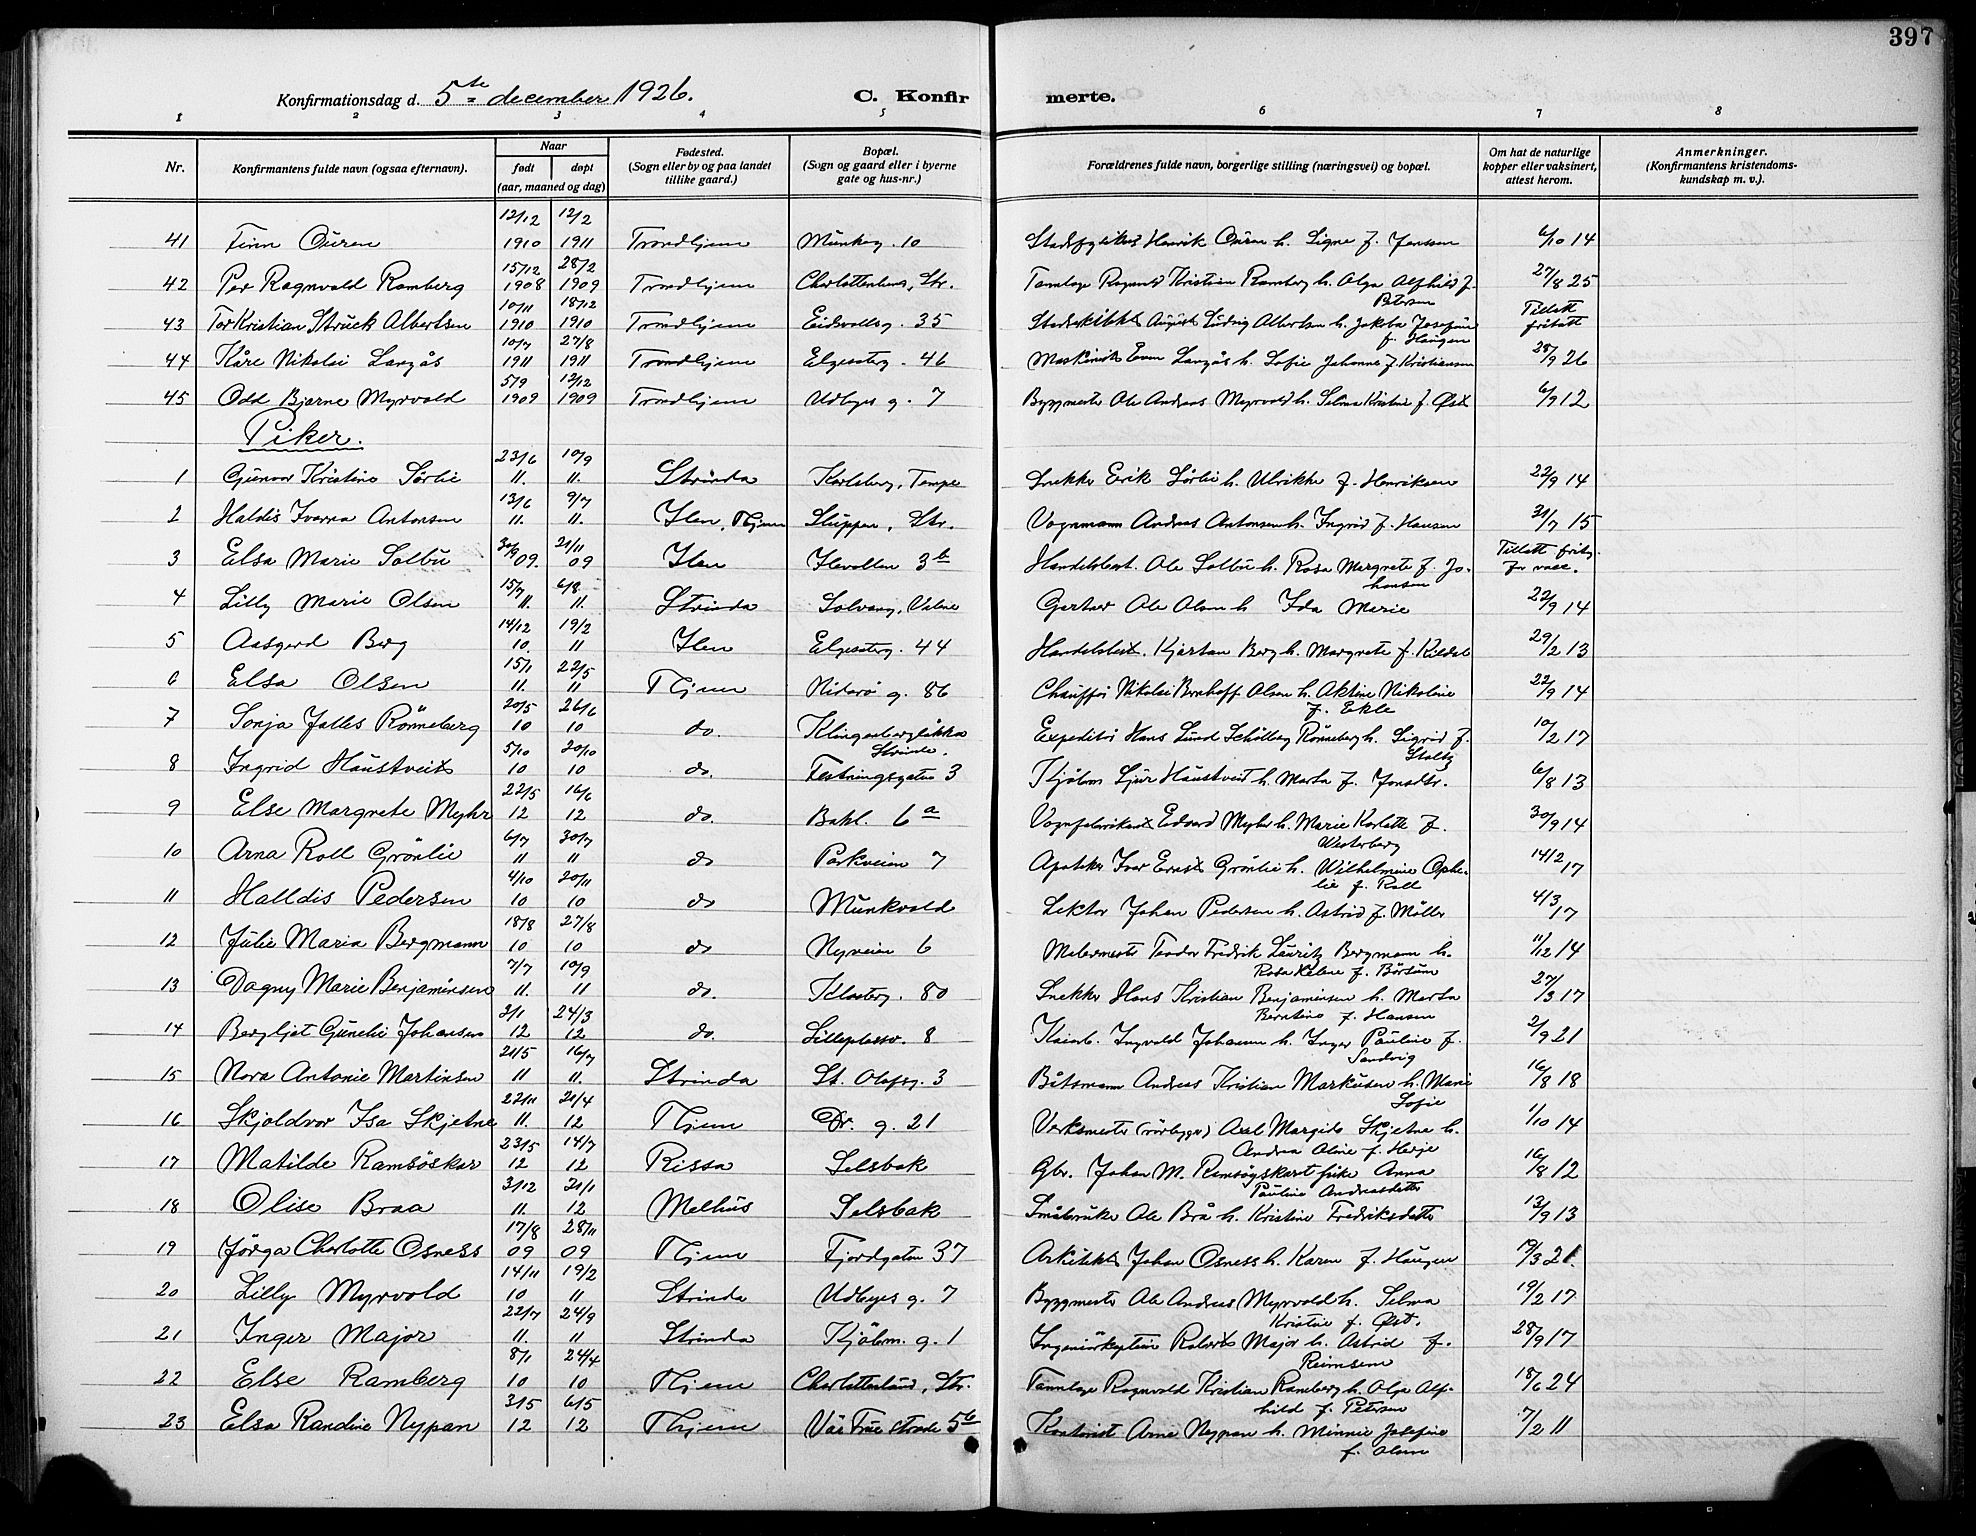 397
Konfirmationsdag d. 5te december 1926. C. Konfir merte.
1 2 3 4 5 6 7 8
Nr. Konfirmantens fulde navn (ogsaa efternavn). Naar født døpt (aar, maaned og dag) Fødested. (Sogn eller by og paa landet tillike gaard.) Bopæl. (Sogn og gaard eller i byerne gate og hus-nr.) Forældrenes fulde navn, borgerlige stilling (næringsvei) og bopæl. Om hat de naturlige kopper eller vaksinert, attest herom. Anmerkninger. (Konfirmantens kristendoms-kundskap m. v.).
41 Finn Ouren 12/12 1910 12/2 1911 Trondhjem Munkeg. 10 Stadsfysikus Henrik Ouren h. Signe f. Jenssen 6/10 14
42 Per Ragnvald Ramberg 15/12 1908 28/2 1909 Trondhjem Charlottenlund, Str. Tannlæge Ragnvald Kristian Ramberg h. Olga Alfhild f. Petersen 27/8 25
43 Tor Kristian Struck Albertsen 10/11 1910 18/12 1910 Trondhjem Eidsvollsg. 35 August Ludvig Albertsen h. Jakoba Josefine f. Haugen Tillatt fritatt
44 Kåre Nikolai Langås 10/7 1911 27/8 1911 Trondhjem Elgesæterg. 46 Maskinist Even Langås h. Sofie Johanne f. Kristiansen 28/9 26
45 Odd Bjarne Myrvold 5/9 1909 12/12 1909 Trondhjem Udbyes g. 7 Byggmester Ole Andreas Myrvold h. Selma Kristine f. Øst 6/9 12
Piker.
1 Gunvor Kristine Sørlie 23/6 11. 10/9 11. Strinda Karlsberg, Tempe Snekker Erik Sørlie h. Ulrikke f. Henriksen 22/9 14
2 Haldis Ivarna Antonsen 13/6 11. 9/7 11. Ilen, Thjem Sluppen, Str. Vognmann Andreas Antonsen h. Ingrid f. Hansen 31/7 15
3 Elsa Marie Solbu 30/9 09. 21/11 09 Ilen Ilevollen 3b Handelsbest. Ole Solbu h. Rosa Margrete f. Johansen Tillatt fritg. for vacc.
4 Lilly Marie Olsen 15/7 11. 6/8 11. Strinda Solvang, Gartner Ole Olsen h. Ida Marie 22/9 14
5 Aasgerd Berg 14/12 10. 19/2 11 Ilen Elgesæterg. 44 Kjartan Berg h. Margrete f. Kildal 29/2 13
6 Elsa Olsen 15/11 11. 22/5 11 Thjem Nidarø g. 86 Chauffør Nikolai Bernhoff Olsen h. Aktine Nikoline f. Ekle 22/9 14
7 Sonja Falles Rönneberg 20/5 10 26/6 10 do. Klingenbergløkka Strinda. Expeditør Hans Lund Schølberg Rønneberg h. Sigrid f. Stoltz 10/2 17
8 Ingrid Haustveit 5/10 10 20/10 10 do. Festningsgaten 3 Kjøbm. Sjur Haustveit h. Marta f. Jonsdtr. 6/8 13
9 Else Margrete Myhr 22/5 12 16/6 12 do. Bakl. 6a Vognfabrikant Edvard Myhr h. Marie Karlotte f. Westerberg 30/9 14
10 Arna Roll Grönlie 6/7 11 30/7 11 do Parkveien 7 Apoteker Ivar Ernst Grönlie h. Wilhelmine Ophelie f. Roll 14/2 17
11 Halldis Pedersen 4/10 10 20/11 10 do Munkvold Lektor Johan Pedersen h. Astrid f. Möller 4/3 17
12 Julie Maria Bergmann 18/8 10 27/8 10 do Nyveien 6 Malermester Teodor Fredrik Lauritz Bergmann h. Rosa Helene f. Börsum 11/12 14
13 Dagny Marie Benjaminsen 7/7 11. 10/9 11 do. Klosterg. 80 Snekker Hans Kristian Benjaminsen h. Marta Berntine f. Hansen 27/3 17
14 Bergljot Gunelie Johansen 3/1 12 24/3 12 do. Lilleplassv. 8 Ingvald Johansen h. Inger Pauline f. Sandvig 2/9 21
15 Nora Antonie Martinsen 21/5 11 16/7 11. Strinda St. Olafsg. 3 Båtsmann Andreas Kristian Markusen h. Marie Sofie 16/8 18
16 Skjoldvor Isa Skjetne 22/11 11. 21/4 12 Thjem Dr. g. 21 Verksmester (rørlegger) Axel Margido Skjetne h. Andrea Oline f. Herje 1/10 14
17 Matilde Ramsöskar 23/5 12 14/7 12 Rissa Selsbak Gbr. Johan M. Remsøyskart frue Anna Pauline Andreasdatter 16/8 12
18 Olise Braa 3/12 11. 21/1 12 Melhus Selsbak Småbruker Ole Brå h. Kristine Fredriksdatter 13/9 13
19 Jørga Charlotte Osness 17/8 09 28/11 09 Thjem Fjordgaten 37 Arkitekt Johan Osness h. Karen f. Haugen 19/3 21.
20 Lilly Myrvold 14/11 10 19/2 11 Strinda Udbyes g. 7 Byggmester Ole Andreas Myrvold h. Selma Kristine f. Øst. 19/2 17
21 Inger Major 22/7 11. 24/9 11 Strinda Kjøbm. g. 1 Ingeniørkaptein Robert Major h. Astrid f. Reimsem 28/9 17
22 Else Ramberg 8/1 10 24/4 10 Thjem Charlottenlund, Str. Tannlæge Ragnvald Kristian Ramberg h. Olga Alfhild f. Petersen 18/6 24
23 Elsa Randine Nypan 3/5 12 6/5 12 Thjem Vår Frue strede 5b Kontorist Arne Nypan h. Minnie Josefine f. Olsen 7/2 11